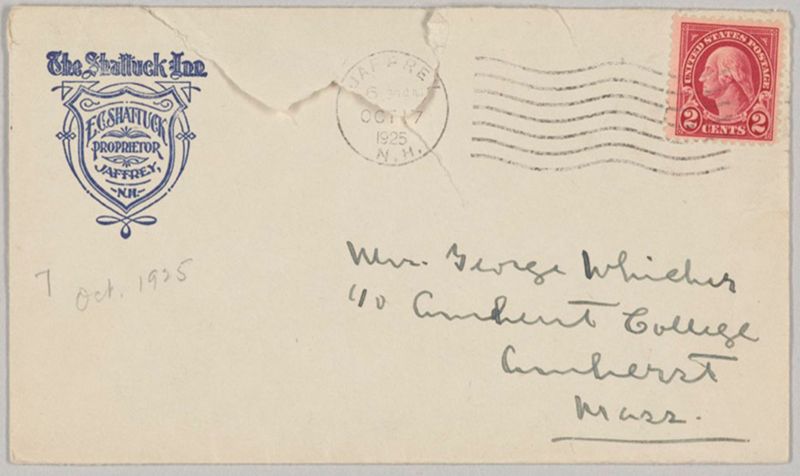 The Shattuck Inn
E.C. SHATTUCK
PROPRIETOR
JAFFREY,
N.H.
JAFFREY
6
OCT 17
1925
N.H.
UNITED STATES POSTAGE
2 CENTS 2
7 Oct. 1925
Mr. George Whicher
c/o Amherst College
Amherst
Mass.